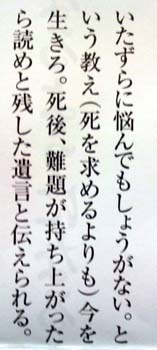 いたずらに悩んでもしょうがない。と
いう教え(死を求めるよりも)今を
生きろ。死後、難題が持ち上がった
ら読めと残した遺言と伝えられる。